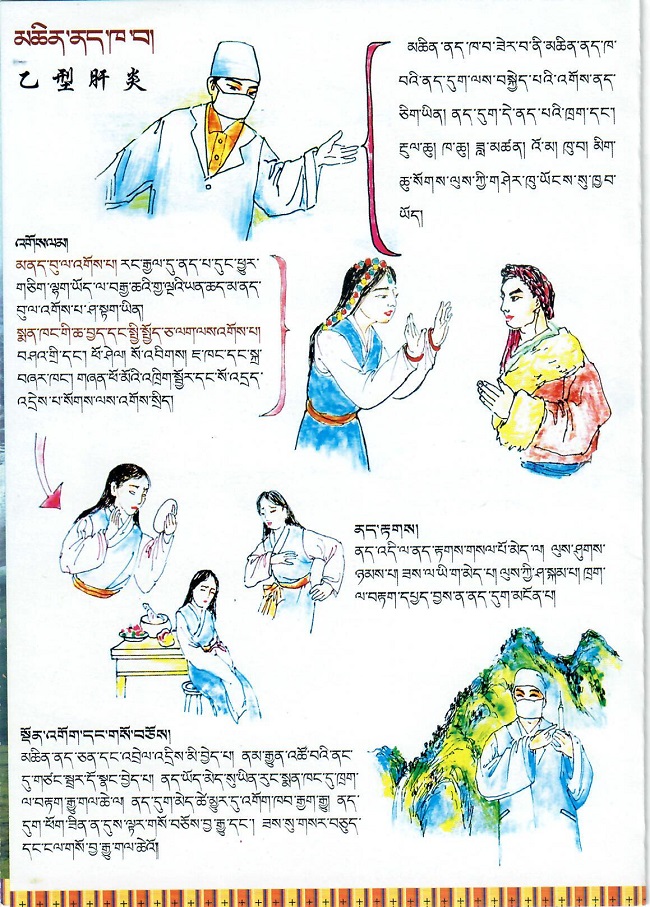 མཆིན་ནད་ཁ་བ།
乙型肝炎
མཆིན་ནད་ཁ་བ་ཟེར་བ་ནི་མཆིན་ནད་ཁ་
བའི་ནད་དུག་ལས་བསྐྱེད་པའི་འགོས་ནད་
ཅིག་ཡིན། ནད་དུག་དེ་ནད་པའི་ཁྲག་དང་།
རྔུལ་ཆུ། ཁ་ཆུ། ཟླ་མཚན། འོ་མ། ཁུ་བ། མིག་
ཆུ་སོགས་ལུས་ཀྱི་གཤེར་ཁུ་ཡོངས་སུ་ཁྱབ་
ཡོད།
འགོས་ལམ།
མནད་བུ་ལ་འགོས་པ། རང་རྒྱལ་དུ་ནད་པ་དུང་ཕྱུར་
གཅིག་ལྷག་ཡོད་ལ་བརྒྱ་ཆའི་
བུ་ལ་འགོས་པ་ཤ་སྟག་ཡིན།
སྨན་ཁང་གི་ཆ་བྱད་དང་སྤྱི་སྤྱོད་ཅ་ལག་ལས་འགོས་པ།
བཞར་ཁང་། གཞན་ཕོ་མོའི་འཁྲིག་སྦྱོར་དང་སོ་འདྲད་
འདྲེས་པ་སོགས་ལས་འགོས་སྲིད།
ནད་རྟགས།
ནད་འདི་ལ་ནད་རྟགས་གསལ་པོ་མེད་ལ། ལུས་ཤུགས་
ཉམས་པ། ཟས་ལ་ཡི་ག་མེད་པ། ལུས་ཀྱི་ཤ་སྐམ་པ། ཁྲག་
ལ་བརྟག་དཔྱད་བྱས་ན་ནད་དུག་མངོན་པ།
སྔོན་འགོག་དང་གསོ་བཅོས།
མཆིན་ནད་ཅན་དང་འབྲེལ་འདྲིས་མི་བྱེད་པ། ནམ་རྒྱུན་འཚོ་བའི་ནང་
དུ་གཙང་སྦྲར་དོ་སྣང་བྱེད་པ། ནད་ཡོད་མེད་སུ་ཡིན་རུང་སྨན་ཁང་དུ་ཁྲག་
ལ་བརྟག་རྒྱུ་གལ་ཆེ་ལ། ནད་དུག་མེད་ཚེ་མྱུར་དུ་འགོག་ཁབ་རྒྱག་རྒྱུ། ནད་
དུག་ཕོག་ཟིན་ན་དུས་ལྟར་གསོ་བཅོས་བྱ་རྒྱུ་དང་། ཟས་སུ་གསར་བཅུད་
དང་ངལ་གསོ་བྱ་རྒྱུ་གལ་ཆེའོ།།